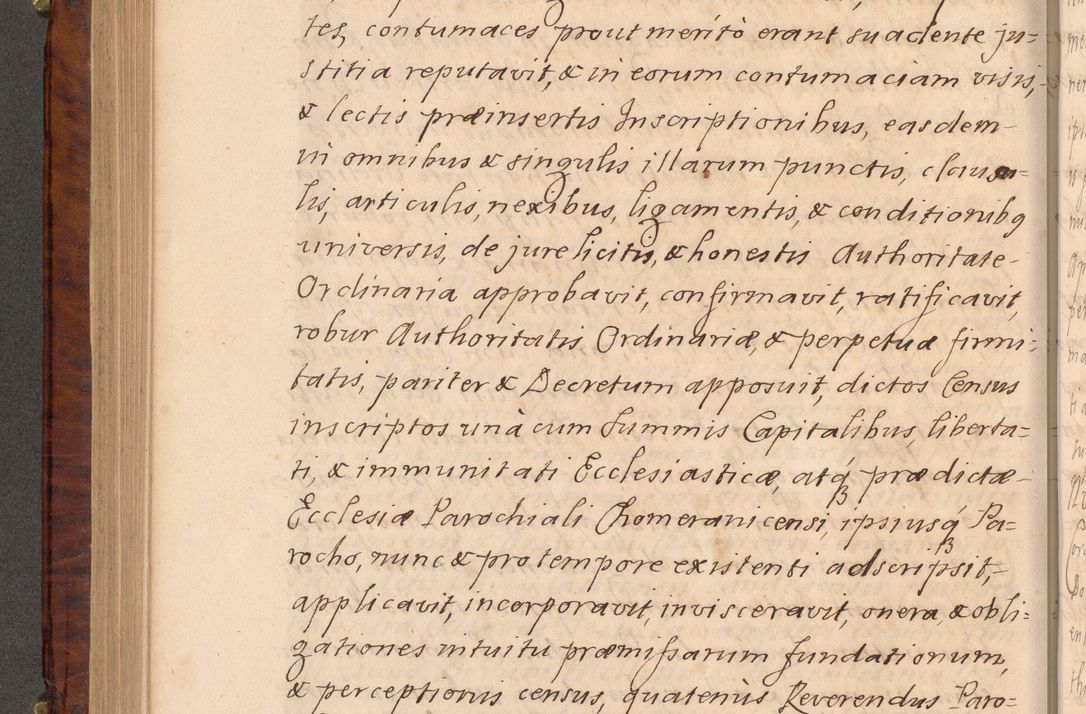 tes, contumaces prout meritò erant suadente ju=
stitia reputavit, & in eorum contumaciam visis,
& lectis præinsertis Inscriptionibus, easdem
in omnibus & singulis illarum punctis, clausu=
lis, articulis, nexibus, ligamentis, & conditionibq
universis, de jure licitis, & honestis Authoritate
Ordinaria approbavit, confirmavit, ratificavit,
robur Authoritatis Ordinariæ, & perpetuæ firmi=
tatis, pariter & Decretum apposuit, dictos Census
inscriptos unà cum Summis Capitalibus, liberta=
ti, & immunitati Ecclesiasticæ, atq́ꝫ prædictæ
Ecclesiæ Parochiali Chomeranicensi, ipsiusq́ꝫ Pa=
rocho, nunc & pro tempore existenti adscripsit,
applicavit, incorporavit, invisceravit, onera, & obli=
gationes intuitu præmißarum fundationum,
& perceptionis census, quatenùs Reverendus Paro=